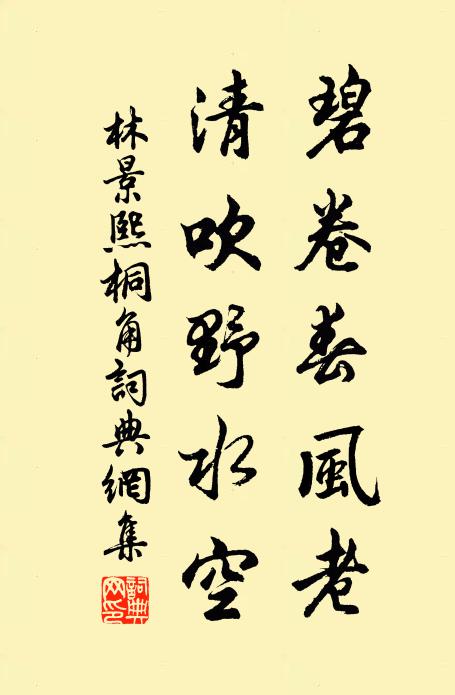 碧卷春風老
清吹野水空
林景熙桐角詞典網集
詞典網印